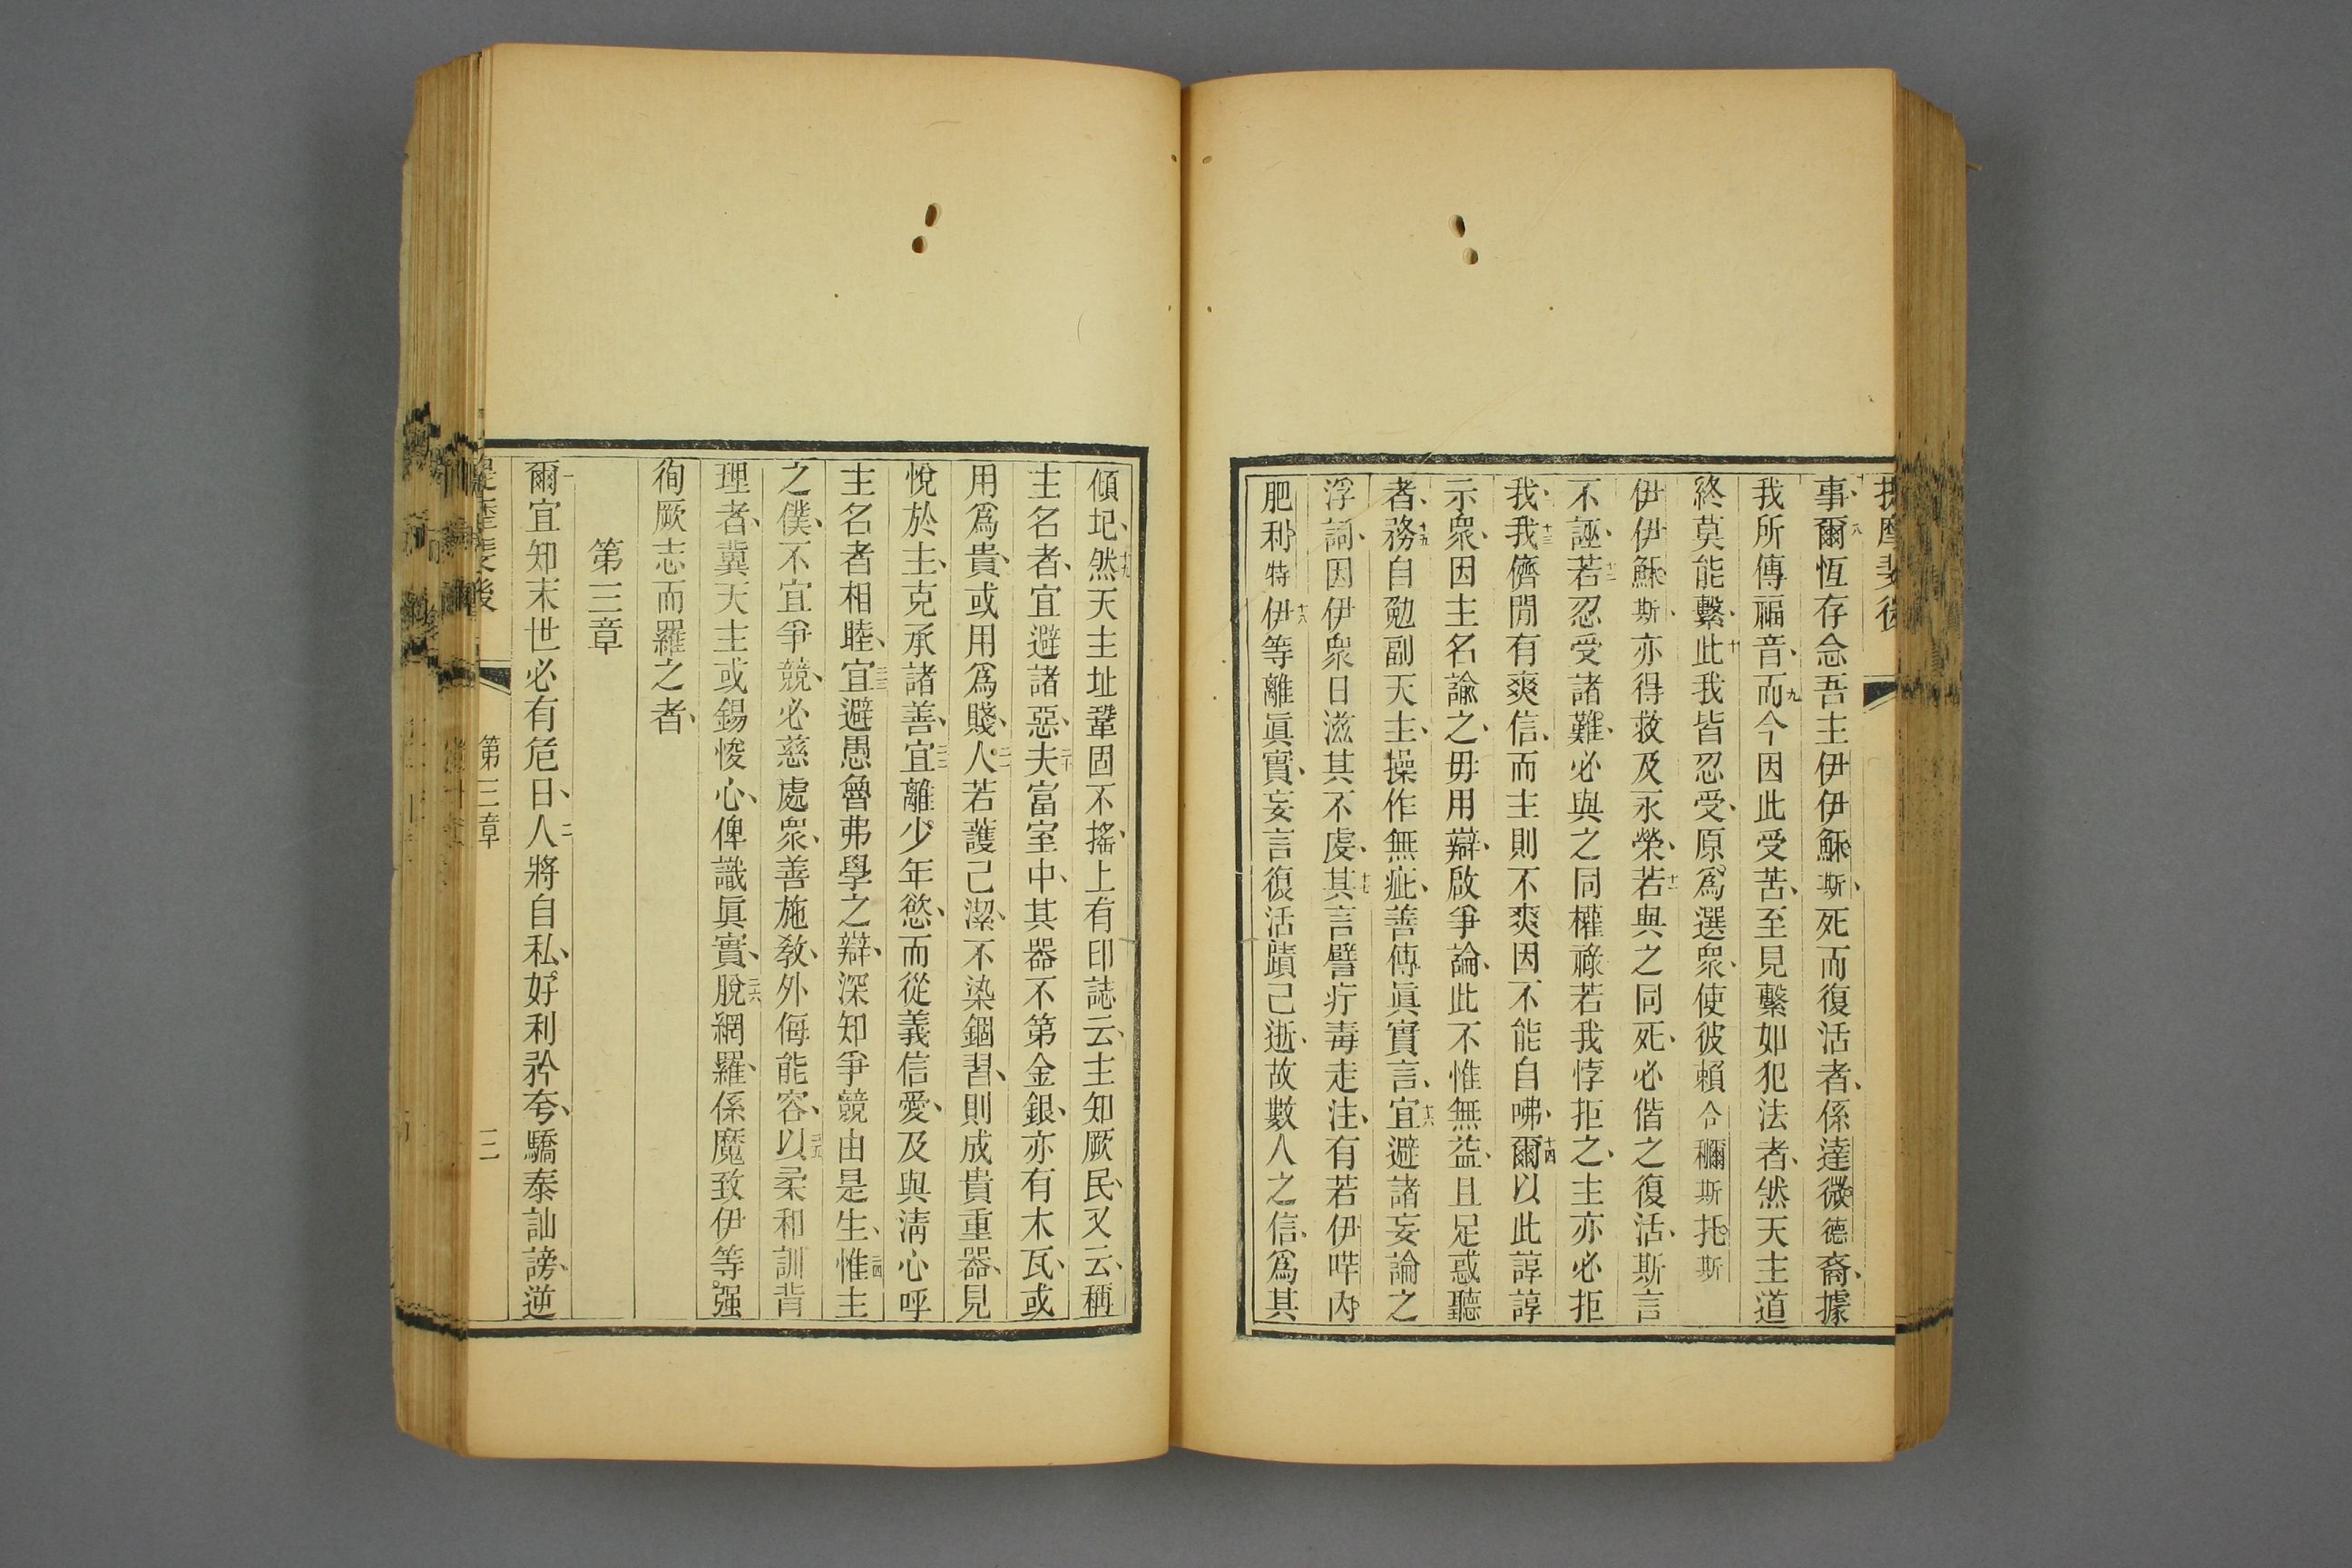 事、八爾恆存念吾主伊伊穌斯、死而復活者、係達微德裔、據
我所傳福音、九而今因此受苦、至見繫如犯法者、然天主道
終莫能繫、十此我皆忍受、原爲選衆、使彼賴合穪斯托斯
伊伊穌斯、亦得救及永榮、十一若與之同死、必偕之復活、斯言
不誣、十二若忍受諸難、必與之同權祿若我悖拒之、主亦必拒
我、十三我儕閒有爽信、而主則不爽因不能自咈、十四爾以此諄諄
示衆、因主名諭之、毋用辯、啟爭論、此不惟無益、且足惑聽
者、十五務自勉副天主、操作無疵、善傳眞實言、十六宜避諸妄論之
浮詞、因伊衆日滋其不虔、十七其言譬疔毒走注、有若伊哶內
肥利特十八伊等離眞實、妄言復活蹟已逝、故數人之信、爲其
傾圮、十九然天主址鞏固不搖、上有印誌云、主知厥民、又云、稱
主名者、宜避諸惡、二十夫富室中、其器不第金銀、亦有木瓦、或
用爲貴、或用爲賤、二一人若護己潔、不染錮習、則成貴重器、見
悅於主、克承諸善、二二宜離少年慾、而從義信愛、及與淸心呼
主名者相睦、二三宜避愚魯弗學之辯、深知爭競由是生、二四惟主
之僕、不宜爭競、必慈處衆、善施敎、外侮能容、二五以柔和訓背
理者、冀天主或錫悛心、俾識眞實、二六脫網羅、係魔致伊等强
徇厥志而羅之者、
第三章
一爾宜知末世必有危日、二人將自私、好利矜夸、驕泰訕謗、逆
第三章
三